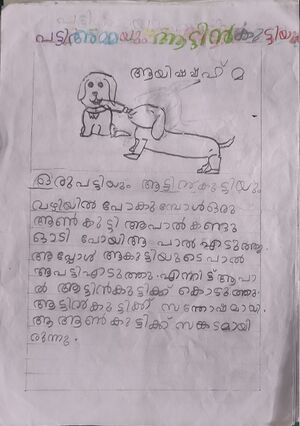 പട്ടിഅമ്മയും ആട്ടിൻകുട്ടിയും
ആയിഷഷഹ് മ
ഒരുപട്ടിയും ആട്ടിൻകുട്ടിയു
വഴിയിൽ പോകുമ്പോൾ ഒരു
ആൺകുട്ടി അപാൽ കണ്ടു
ഓടി പോയിആ പാൽ എടുത്തു.
അപ്പോൾ ആകുട്ടിയുടെ പാൽ
ആപട്ടി എടുത്തു. എന്നിട്ട് ആപാ
ൽ ആട്ടിൻകുട്ടിക്ക് കൊടുത്തു.
ആട്ടിൻകുട്ടിക്ക് സന്തോഷമായി.
ആ ആൺകുട്ടിക്ക് സങ്കടമായി
രുന്നു.